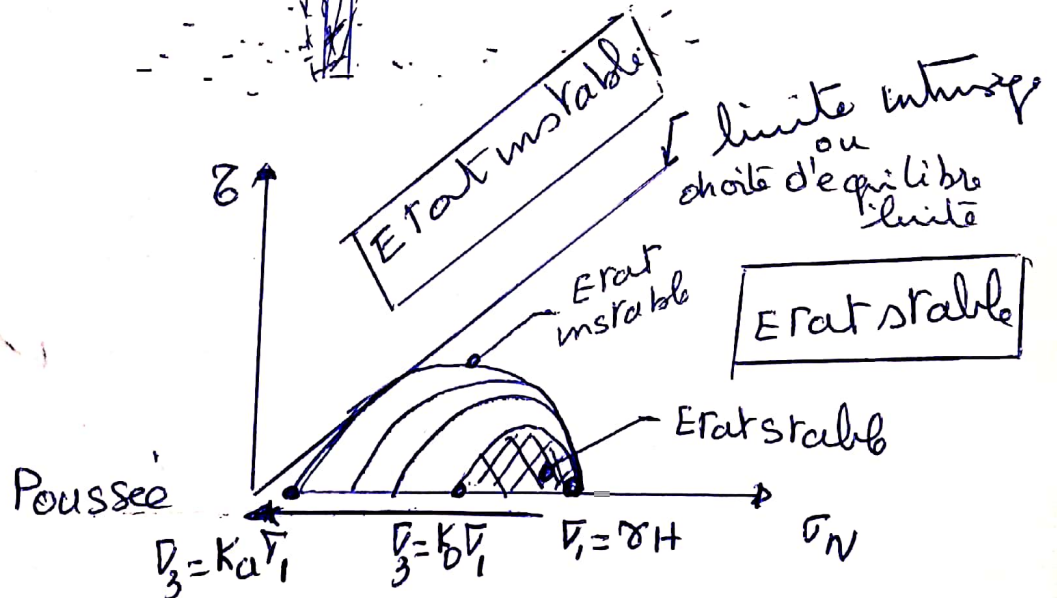 Etat instable
limite intrinsèq
ou
droite d'equilibre
limite
τ
Etat
instable
Etat stable
Etat stable
Poussée
σ3 = Ka σ1
σ3 = K0 σ1
σ1 = γH
σN